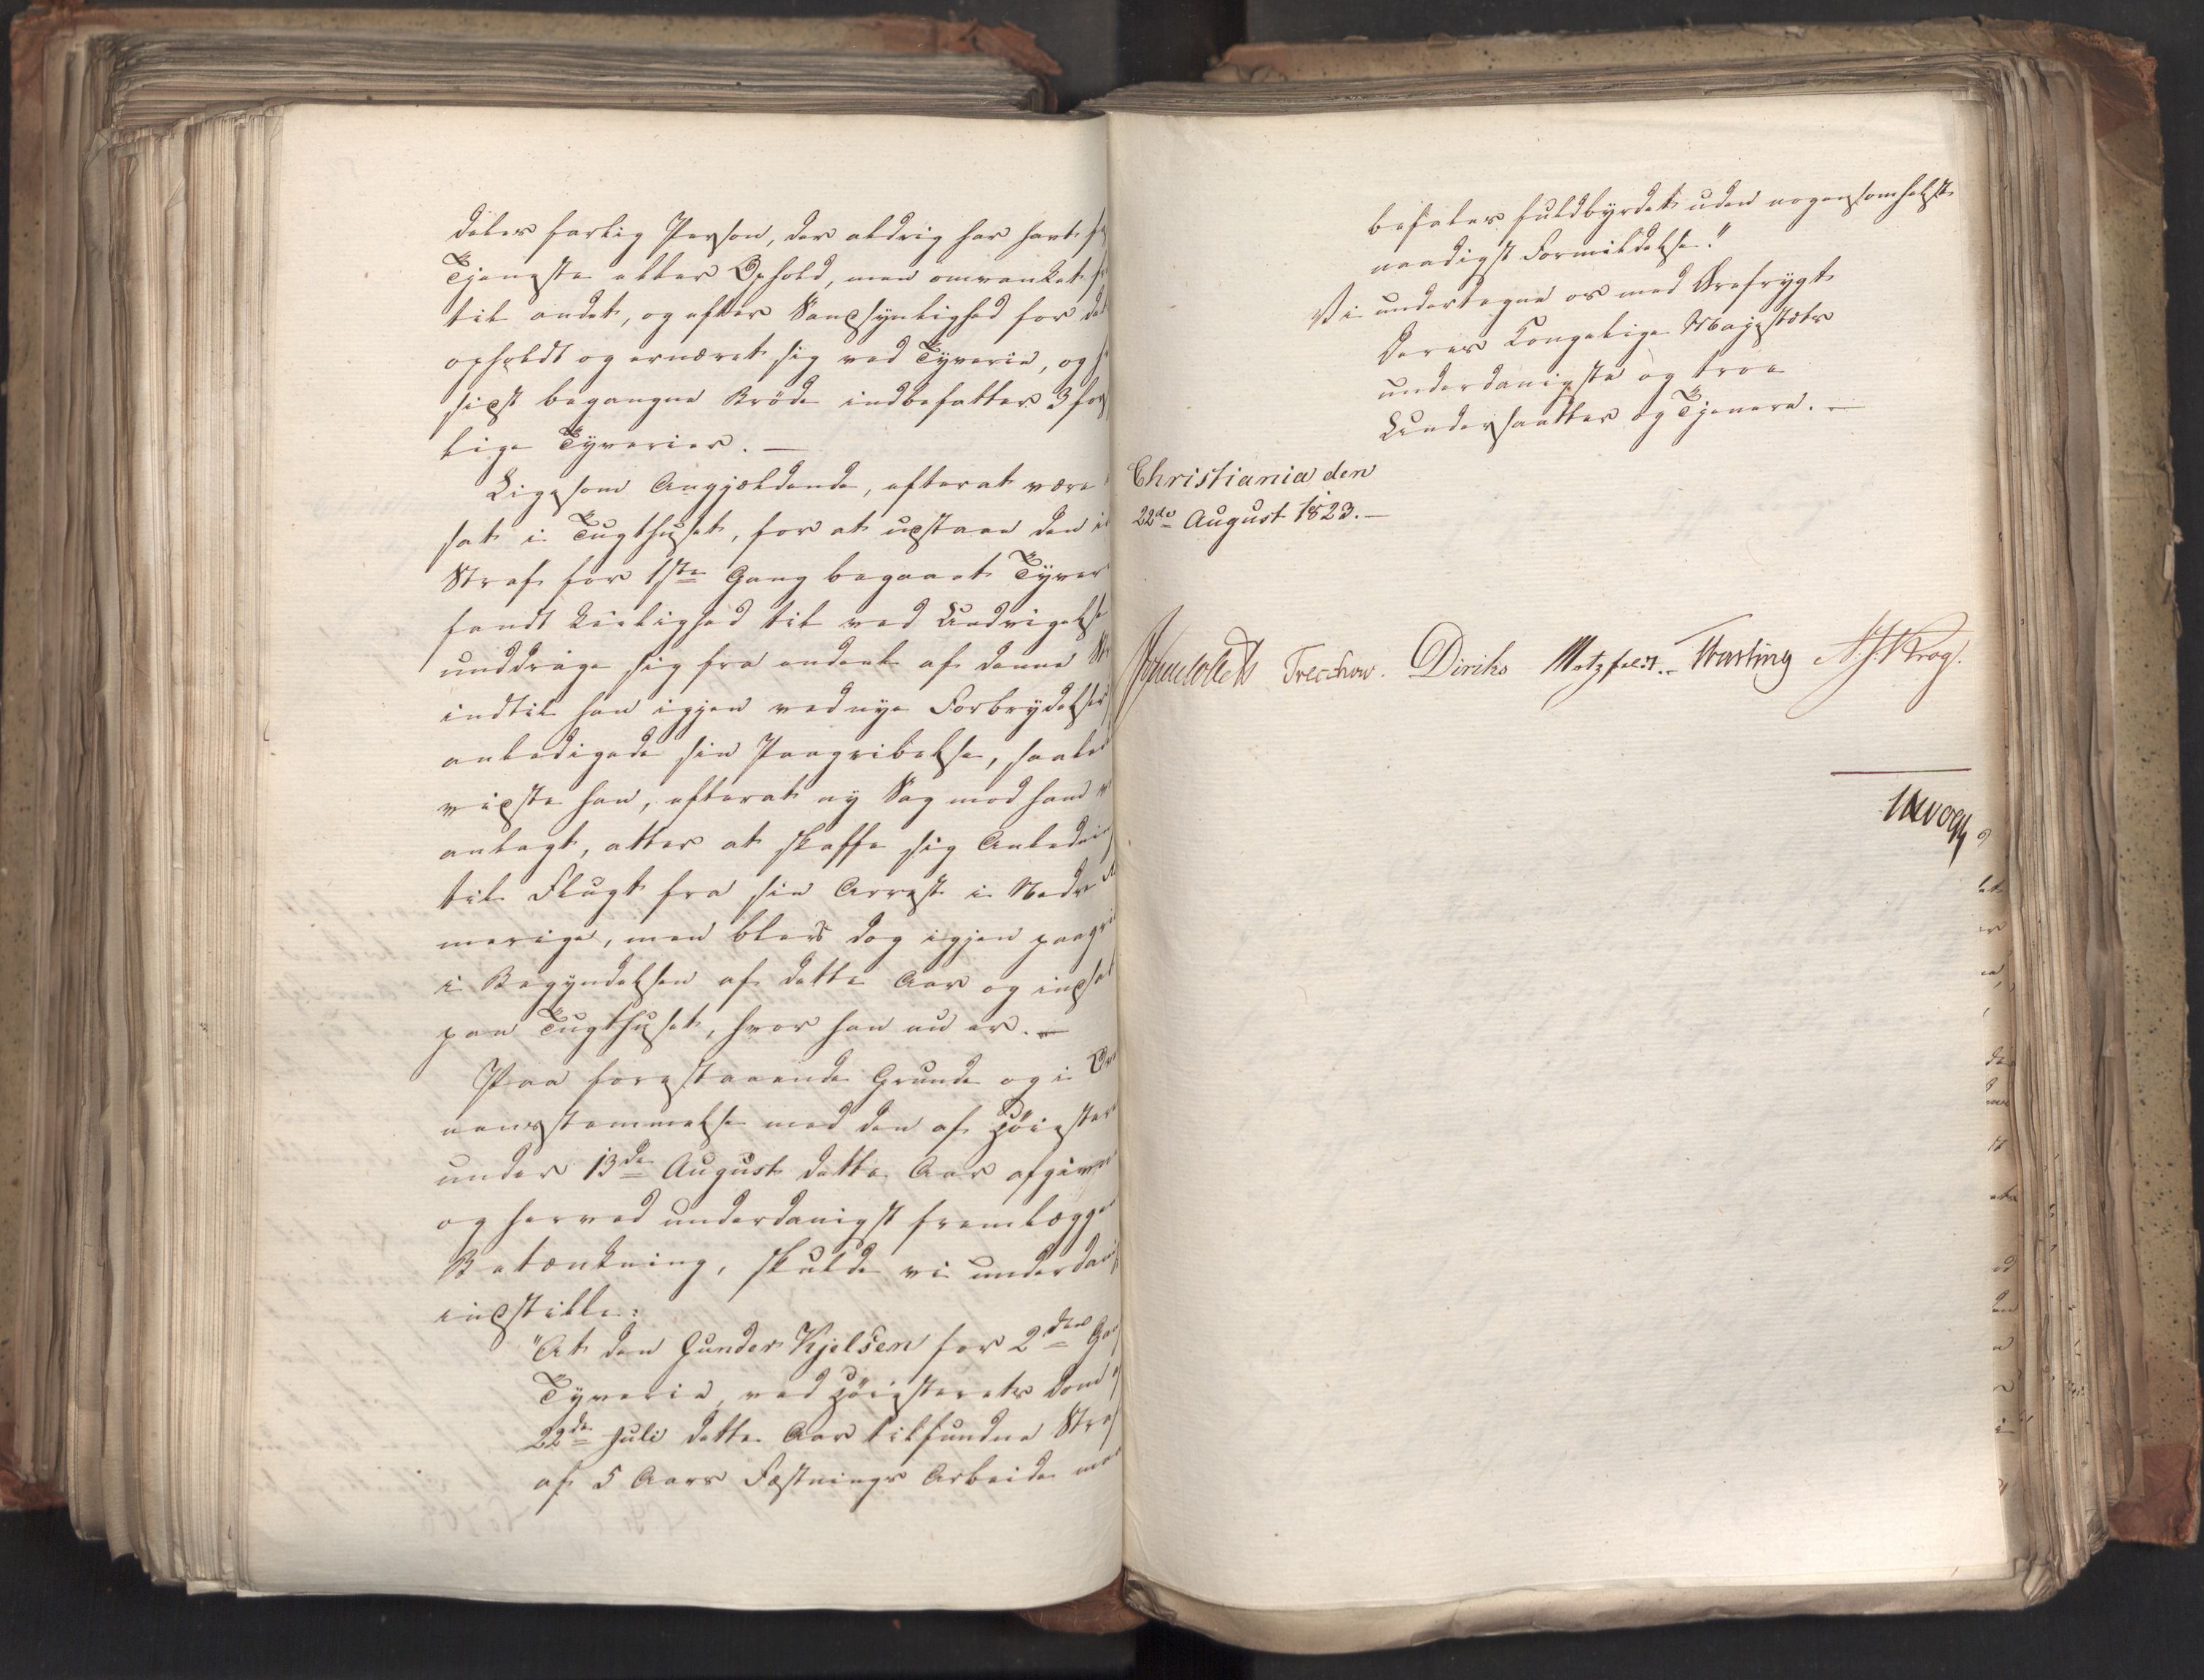 deles farlig Person, der aldrig har havt
Tjeneste eller Ophold, men omvanket
til andet, og efter Sandsynlighed for
opholdt og ernæret sig ved Tyverie, og
sidst begangne Bröde indbefatter 3
lige Tyverier. —
Ligesom Angjældende, efterat være
sat i Tugthuset, for at udstaae den
Straf for 1ste Gang begaaet Tyver
fandt Leilighed til ved Undvigelse
unddrage sig fra endeel af denne
indtil han igjen ved nye Forbrydelser
anledigede sin Paagribelse, saaled
vidste han, efterat ny Sag mod ham
anlagt, atter at skaffe sig Anledning
til Flugt fra sin Arrest i Nedre
merige, men blev dog igjen paagre
i Begyndelsen af dette Aar og indsat
paa Tugthuset, hvor han nu er. —
Paa forestaaende Grunde og i Ov
eensstemmelse med den af Höiester
under 13de August dette Aar afgivne
og herved underdanigst fremlægge
Betænkning, skulde vi underdanig
indstille:
"At den Gunder Kjelsen for 2den Gang
Tyverie, ved Höiesterets Dom
22de Juli dette Aar tilfundne Straf
af 5 Aars Fæstnings Arbeide
befales fuldbyrdet uden nogensomhelst
naadigst Formildelse."
Vi undertegne os med Ærefrygt
Deres Kongelige Majestæts
underdanigste og troe
Undersaatter og Tjenere. —
Christiania den
22de August 1823. —
Jonas Collett Treschow. Diriks Motzfeldt. Fasting N. J. Krog.